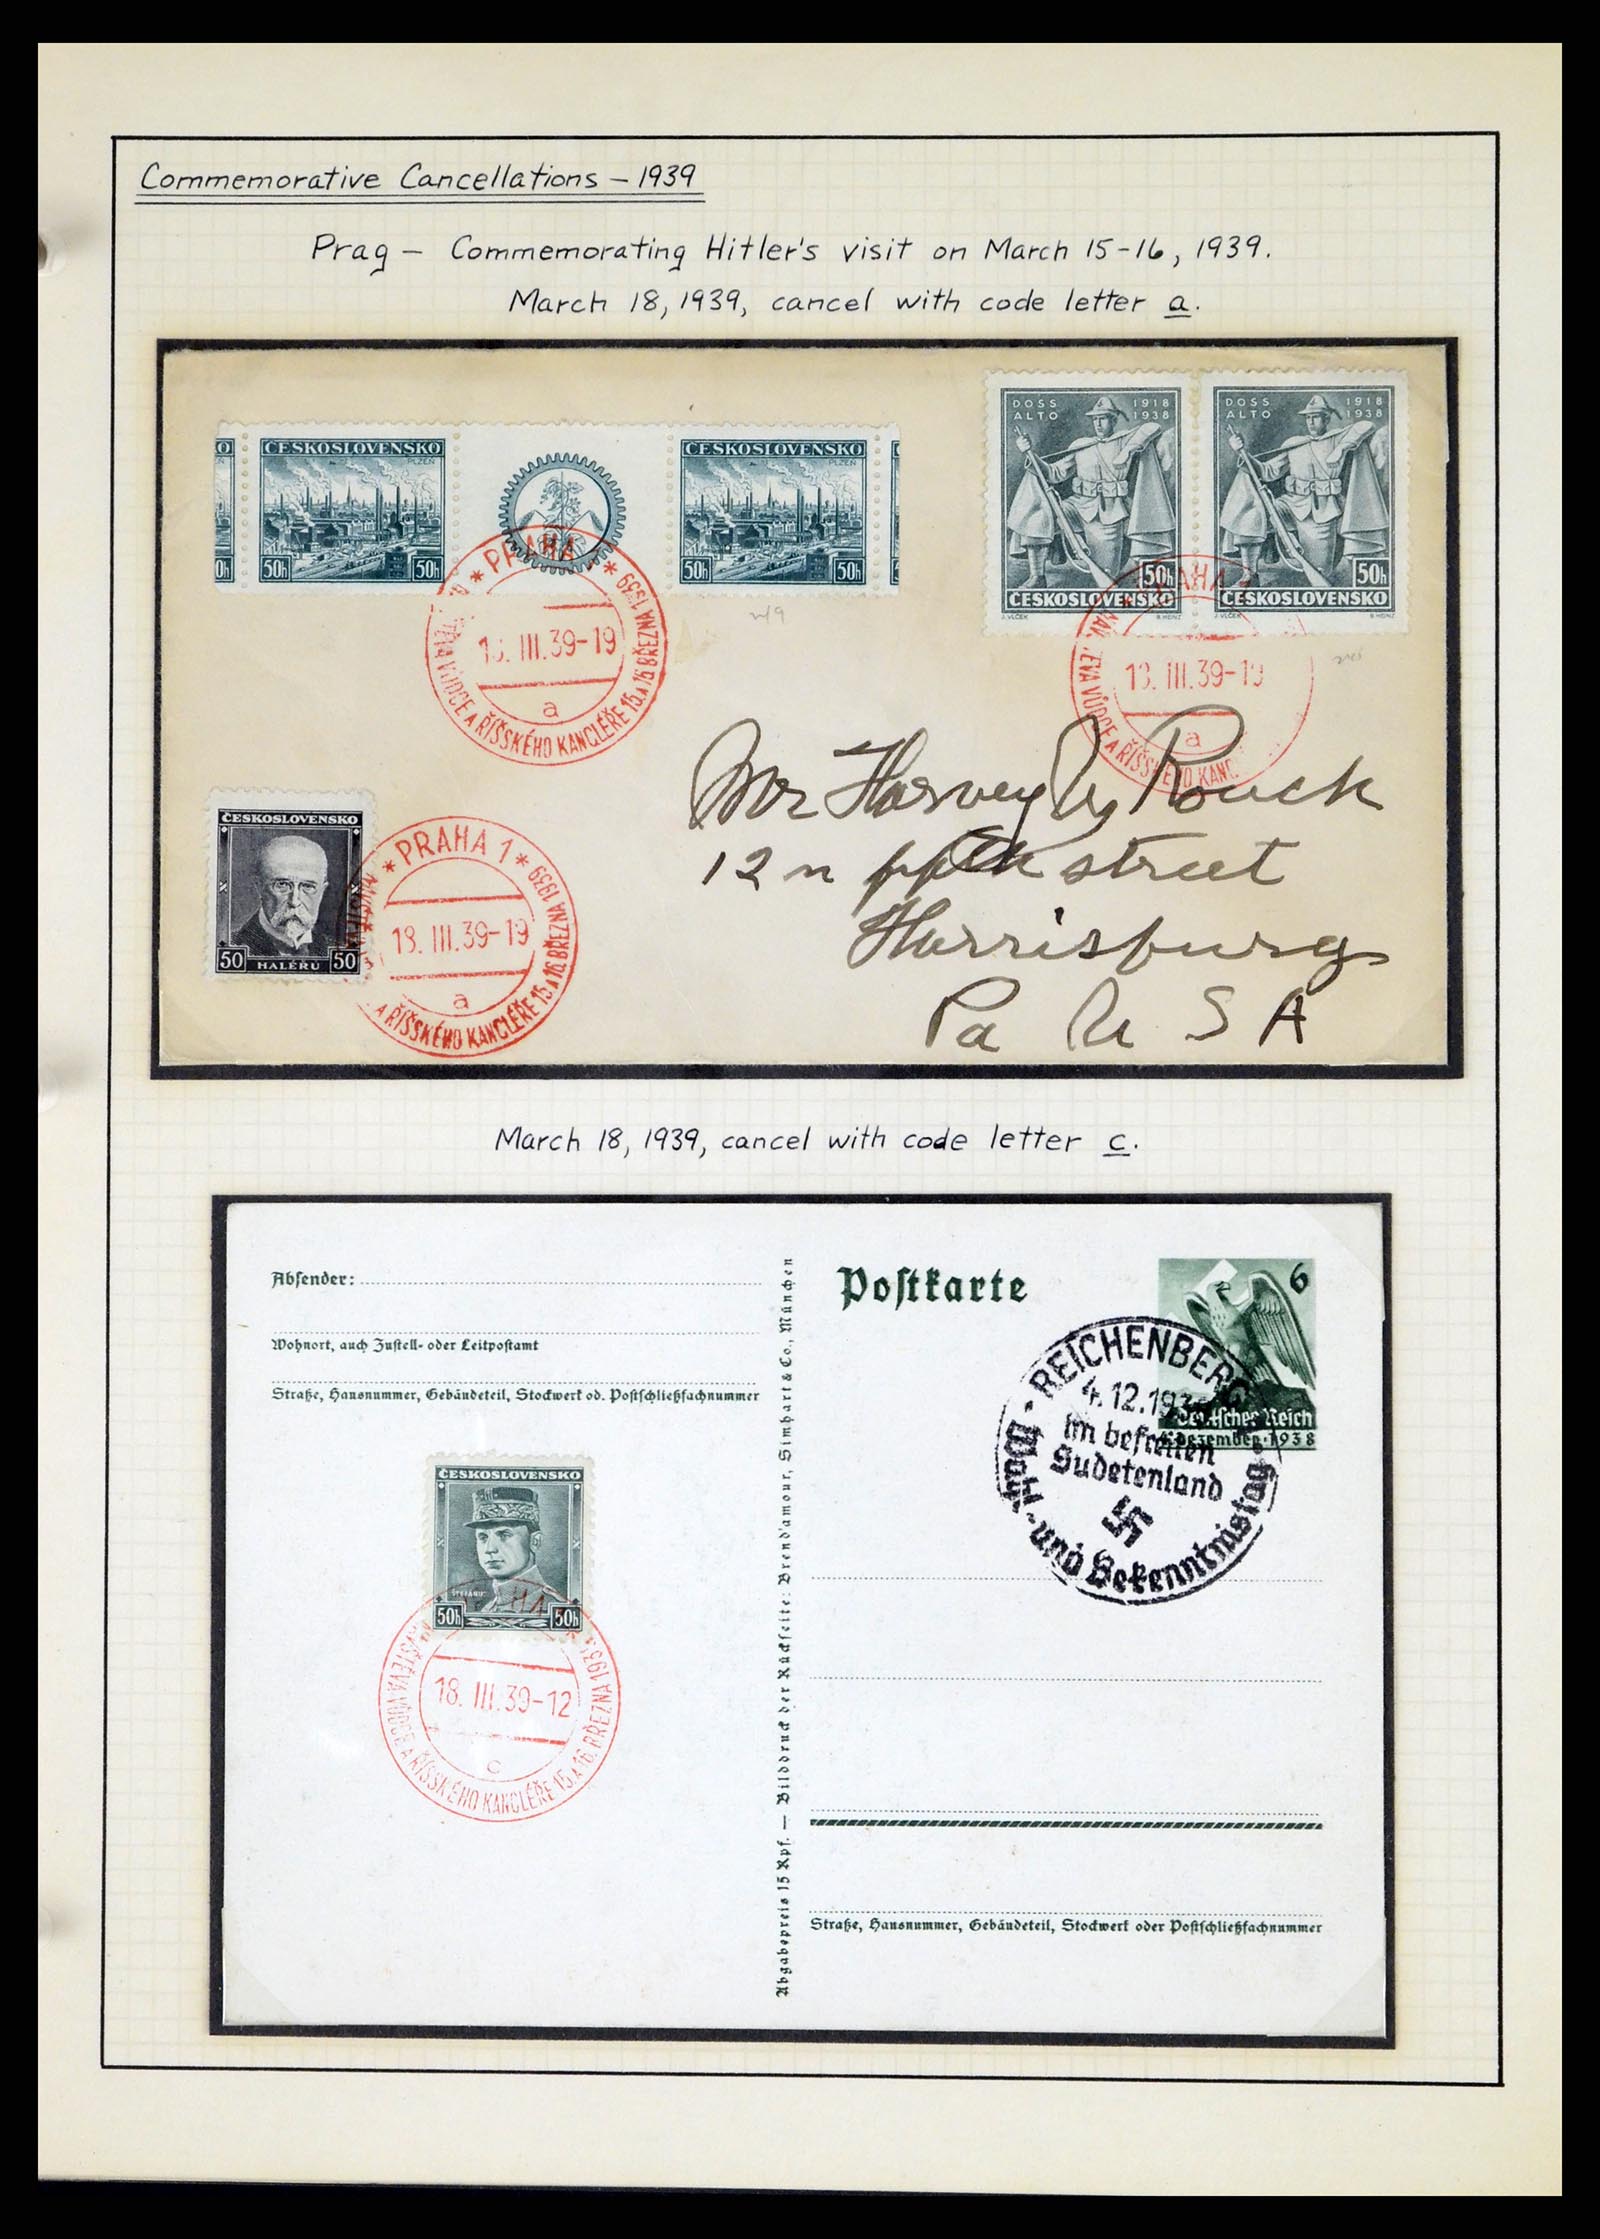 Commemorative Cancellations – 1939
Prag – Commemorating Hitler's visit on March 15-16, 1939.
March 18, 1939, cancel with code letter a.
ČESKOSLOVENSKO
PLZEŇ
50h 50h
ČESKOSLOVENSKO
PLZEŇ
50h 50h
DOSS ALTO 1918 1938
50h
ČESKOSLOVENSKO
J. VLČEK B. HEINZ
DOSS ALTO 1918 1938
50h
ČESKOSLOVENSKO
J. VLČEK B. HEINZ
* PRAHA *
III.39-19
a
VŮDCE A ŘÍŠSKÉHO KANCLÉŘE 15. A 16. BŘEZNA 1939
PRAHA
18. III.39-19
a
VŮDCE A ŘÍŠSKÉHO KANC
ČESKOSLOVENSKO
50 HALÉŘŮ 50
* PRAHA 1 *
18. III.39-19
a
A ŘÍŠSKÉHO KANCLÉŘE 15. A 16. BŘEZNA 1939
Mr Harvey Rouck
12 n street
Harrisburg
Pa U S A
March 18, 1939, cancel with code letter c.
Abſender:
Wohnort, auch Zuſtell- oder Leitpoſtamt
Straße, Hausnummer, Gebäudeteil, Stockwerk od. Poſtſchließfachnummer
ČESKOSLOVENSKO
ŠTEFÁNIK
50h 50h
18. III.39-12
c
NÁVŠTĚVA VŮDCE A ŘÍŠSKÉHO KANCLÉŘE 15. A 16. BŘEZNA 1939
Abgabepreis 15 Rpf. — Bilddruck der Rückſeite: Brend'amour, Simhart & Co., München
Poſtkarte
6
Deutſches Reich
4. Dezember · 1938
REICHENBERG
4.12.1938
im befreiten
Sudetenland
Wahl- und Bekenntnistag
Straße, Hausnummer, Gebäudeteil, Stockwerk oder Poſtſchließfachnummer